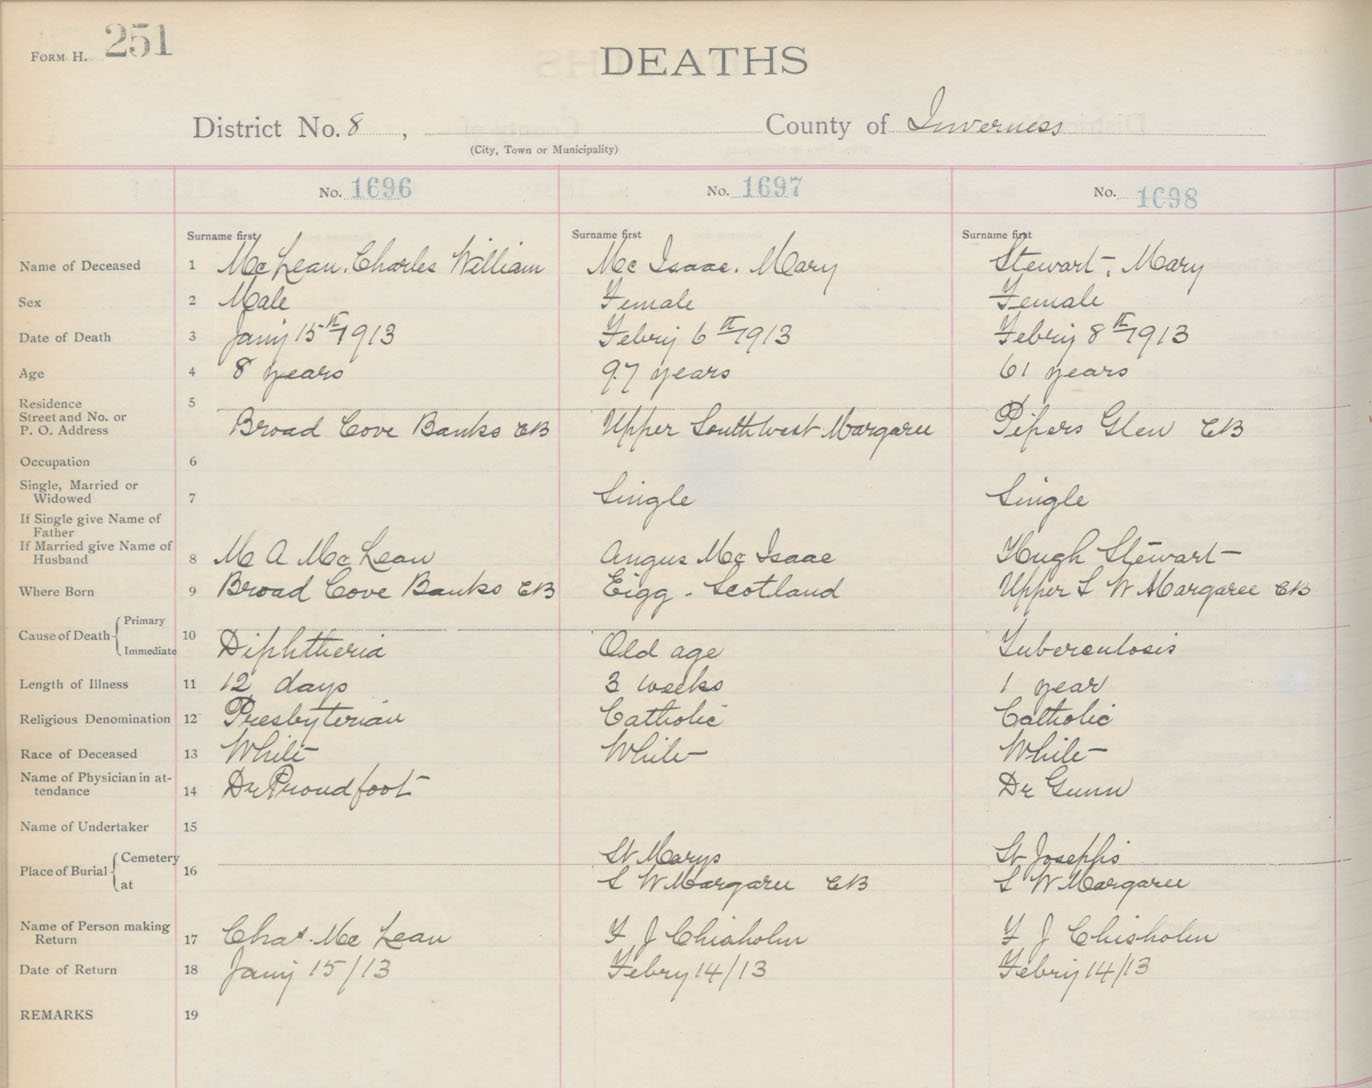 Form H. 251
DEATHS
District No. 8 , County of Inverness
(City, Town or Municipality)
No. 1696 No. 1697 No. 1698
Surname first Surname first Surname first
Name of Deceased 1 McLean, Charles William Mc Isaac. Mary Stewart, Mary
Sex 2 Male Female Female
Date of Death 3 Jany 15th 1913 Febry 6th 1913 Febry 8th 1913
Age 4 8 years 97 years 61 years
Residence 5
Street and No. or
P. O. Address Broad Cove Banks CB Upper Southwest Margaree Pipers Glen CB
Occupation 6
Single, Married or
Widowed 7 Single Single
If Single give Name of
Father
If Married give Name of
Husband 8 M A McLean Angus Mc Isaac Hugh Stewart
Where Born 9 Broad Cove Banks CB Eigg - Scotland Upper S W Margaree CB
Cause of Death Primary
Immediate 10 Diphtheria Old age Tuberculosis
Length of Illness 11 12 days 3 weeks 1 year
Religious Denomination 12 Presbyterian Catholic Catholic
Race of Deceased 13 White White White
Name of Physician in at-
tendance 14 Dr Proudfoot Dr Gunn
Name of Undertaker 15
Place of Burial Cemetery 16 St Marys St Josephs
at S W Margaree CB S W Margaree
Name of Person making
Return 17 Chas. McLean F J Chisholm F J Chisholm
Date of Return 18 Jany 15/13 Febry 14/13 Febry 14/13
REMARKS 19